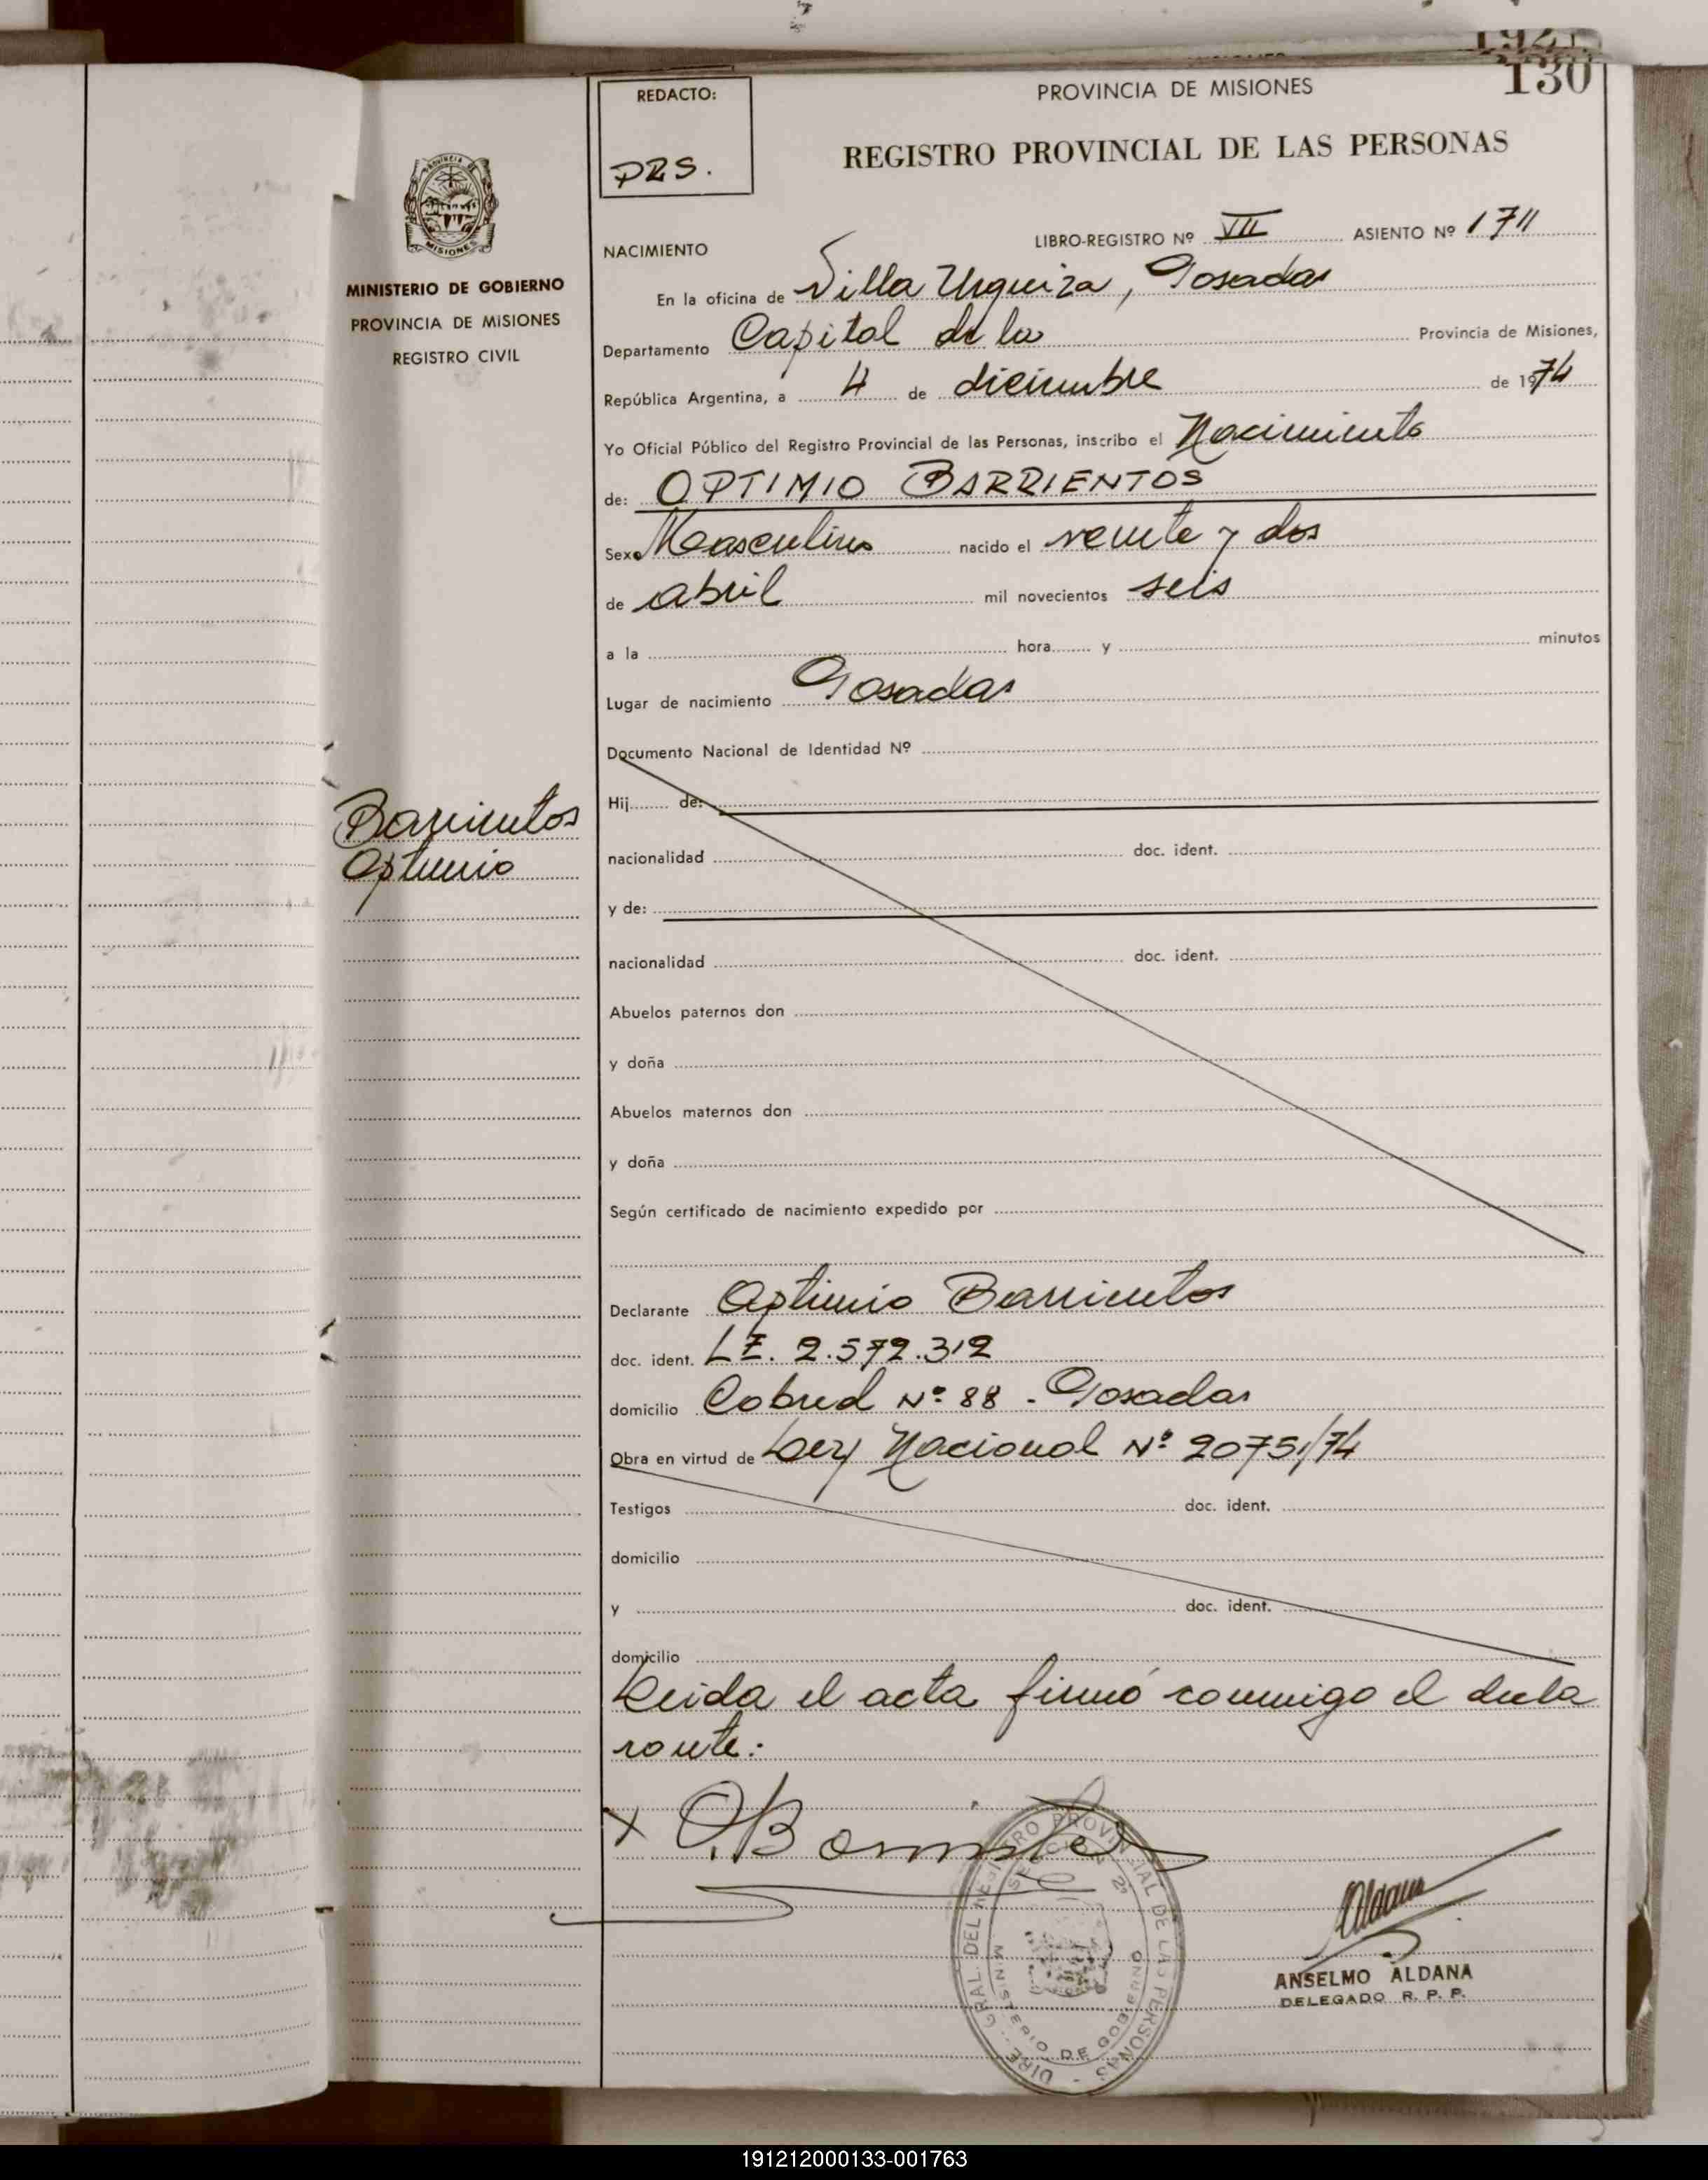 130
REDACTO:
PRS.
PROVINCIA DE MISIONES
REGISTRO PROVINCIAL DE LAS PERSONAS
MISIONES
MINISTERIO DE GOBIERNO
PROVINCIA DE MISIONES
REGISTRO CIVIL
NACIMIENTO LIBRO-REGISTRO Nº VII ASIENTO Nº 1711
En la oficina de Villa Urquiza, Posadas
Departamento Capital de la Provincia de Misiones,
República Argentina, a 4 de diciembre de 1974
Yo Oficial Público del Registro Provincial de las Personas, inscribo el Nacimiento
de: OPTIMIO BARRIENTOS
Sexo Masculino nacido el veinte y dos
de abril mil novecientos seis
a la hora y minutos
Lugar de nacimiento Posadas
Documento Nacional de Identidad Nº
Barrientos
Optimio
Hij de:
nacionalidad doc. ident.
y de:
nacionalidad doc. ident.
Abuelos paternos don
y doña
Abuelos maternos don
y doña
Según certificado de nacimiento expedido por
Declarante Optimio Barrientos
doc. ident. LE. 2.572.312
domicilio Cobred Nº 88 - Posadas
Obra en virtud de Ley Nacional Nº 20751/74
Testigos doc. ident.
domicilio
y doc. ident.
domicilio
Leida el acta firmó conmigo el decla
rante:
DIRE. GRAL. DEL REGISTRO PROVINCIAL DE LAS PERSONAS
MINISTERIO DE GOBIERNO
Aldana
ANSELMO ALDANA
DELEGADO R. P. P.
191212000133-001763